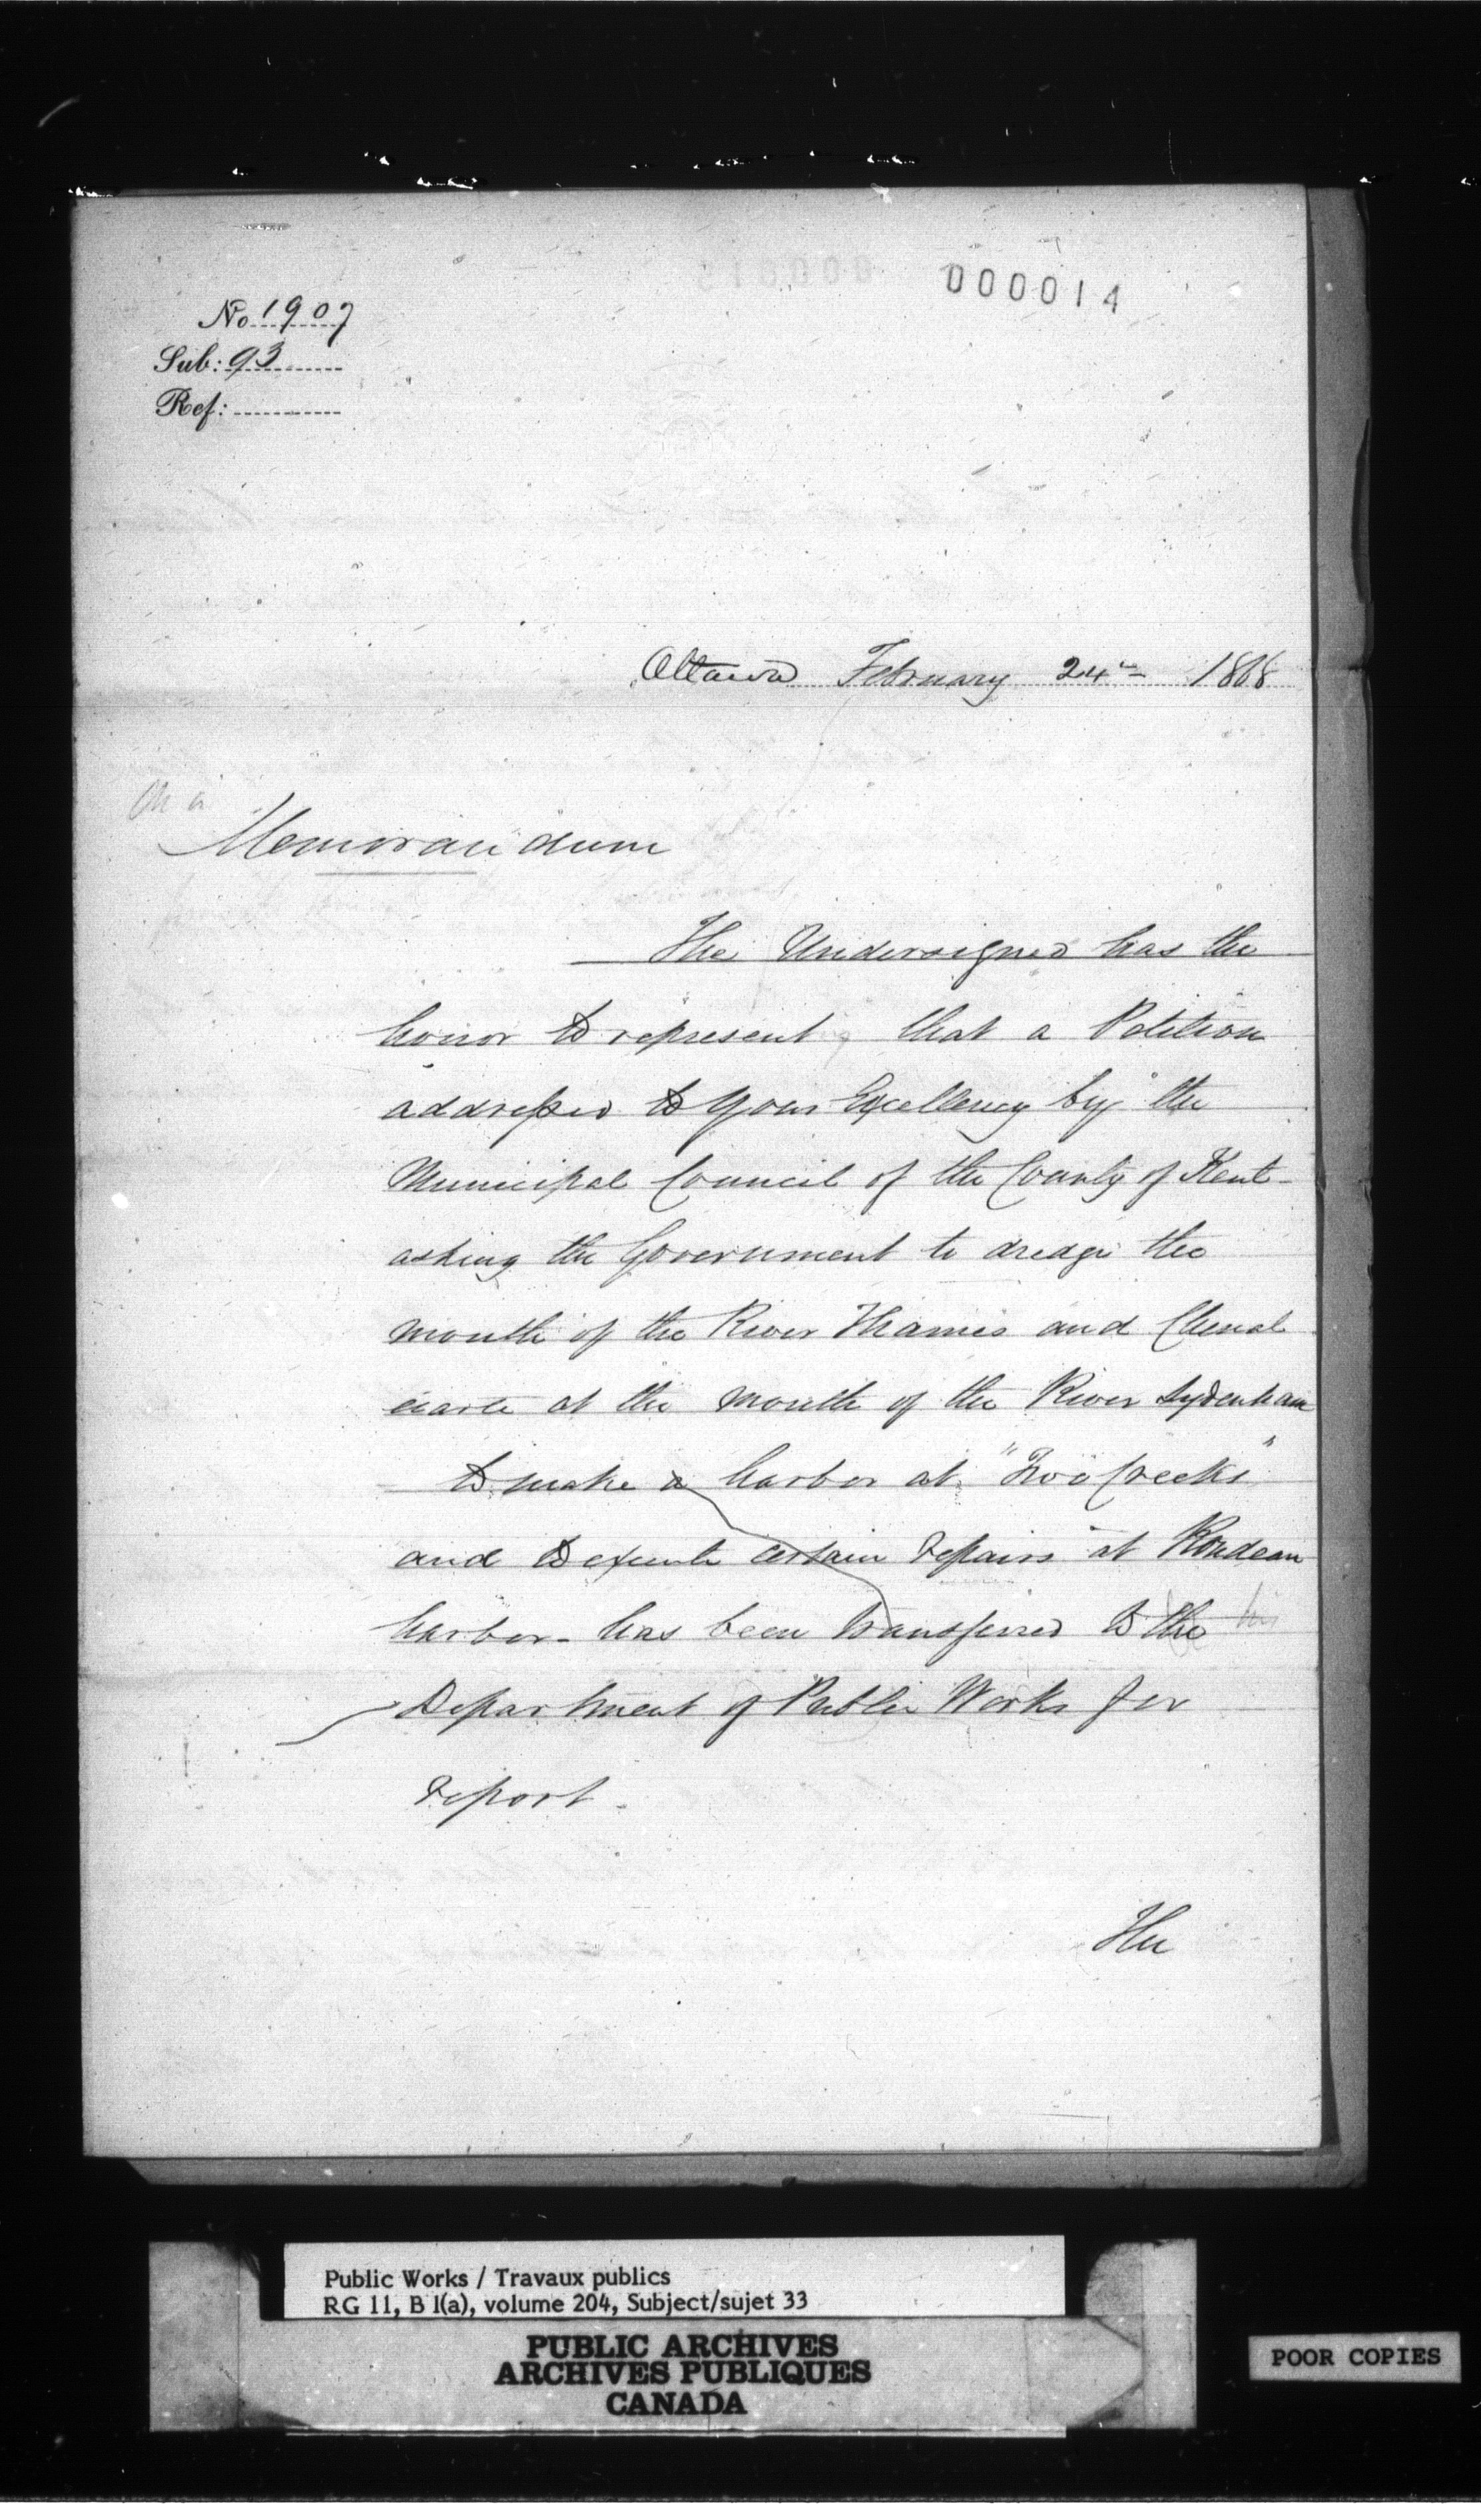 000014
No 1907
Sub: 93
Ref:
Ottawa February 24th 1868
Memorandum
The Undersigned has the
honor to represent, that a Petition
addressed to Your Excellency by the
Municipal Council of the County of Kent -
asking the Government to dredge the
mouth of the River Thames and Chenal
ecarté at the mouth of the River Sydenham
to make a harbor at "Two Creeks"
and to execute certain repairs at Rondeau
harbor - has been transferred to the
Department of Public Works for
report -
The
Public Works / Travaux publics
RG 11, B 1(a), volume 204, Subject/sujet 33
PUBLIC ARCHIVES
ARCHIVES PUBLIQUES
CANADA
POOR COPIES